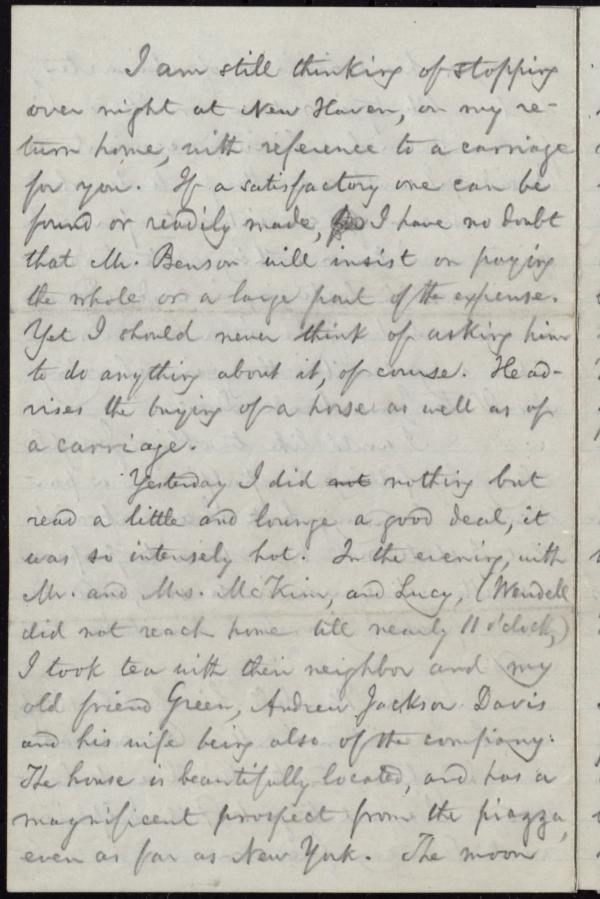 I am still thinking of stopping
over night at New Haven, on my re-
turn home, with reference to a carriage
for you. If a satisfactory one can be
found or readily made, I have no doubt
that Mr. Benson will insist on paying
the whole or a large part of the expense.
Yet I should never think of asking him
to do anything about it, of course. He ad-
vises the buying of a horse as well as of
a carriage.
Yesterday I did not nothing but
read a little and lounge a good deal, it
was so intensely hot. In the evening, with
Mr. and Mrs. McKim, and Lucy, (Wendell
did not reach home till nearly 11 o'clock,)
I took tea with their neighbor and my
old friend Green, Andrew Jackson Davis
and his wife being also of the company.
The house is beautifully located, and has a
magnificent prospect from the piazza,
even as far as New York. The moon